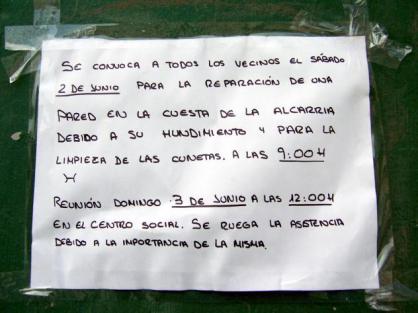 SE CONVOCA A TODOS LOS VECINOS EL SÁBADO
2 DE JUNIO PARA LA REPARACIÓN DE UNA
PARED EN LA CUESTA DE LA ALCARRIA
DEBIDO A SU HUNDIMIENTO Y PARA LA
LIMPIEZA DE LAS CUNETAS. A LAS 9:00 H
REUNIÓN DOMINGO 3 DE JUNIO A LAS 12:00 H
EN EL CENTRO SOCIAL. SE RUEGA LA ASISTENCIA
DEBIDO A LA IMPORTANCIA DE LA MISMA.